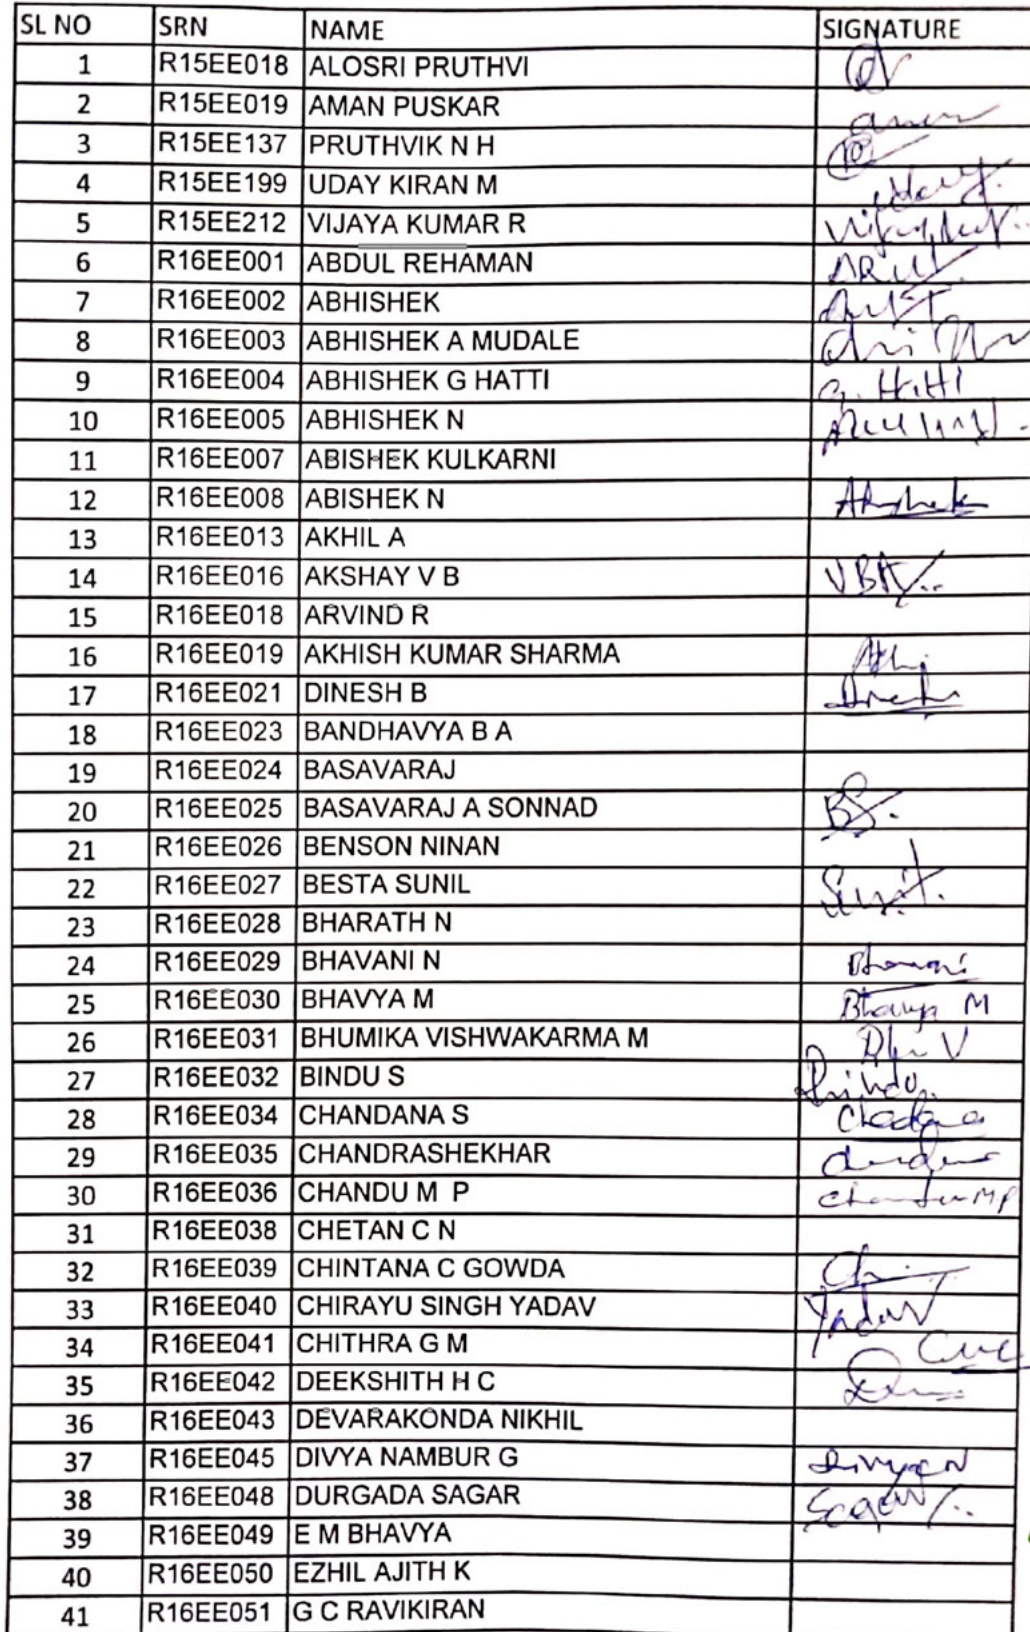 SL NO SRN NAME SIGNATURE
1 R15EE018 ALOSRI PRUTHVI
2 R15EE019 AMAN PUSKAR
3 R15EE137 PRUTHVIK N H
4 R15EE199 UDAY KIRAN M
5 R15EE212 VIJAYA KUMAR R
6 R16EE001 ABDUL REHAMAN
7 R16EE002 ABHISHEK
8 R16EE003 ABHISHEK A MUDALE
9 R16EE004 ABHISHEK G HATTI G. HATTI
10 R16EE005 ABHISHEK N
11 R16EE007 ABISHEK KULKARNI
12 R16EE008 ABISHEK N
13 R16EE013 AKHIL A
14 R16EE016 AKSHAY V B VBA
15 R16EE018 ARVIND R
16 R16EE019 AKHISH KUMAR SHARMA
17 R16EE021 DINESH B
18 R16EE023 BANDHAVYA B A
19 R16EE024 BASAVARAJ
20 R16EE025 BASAVARAJ A SONNAD BS.
21 R16EE026 BENSON NINAN
22 R16EE027 BESTA SUNIL
23 R16EE028 BHARATH N
24 R16EE029 BHAVANI N
25 R16EE030 BHAVYA M Bhavya M
26 R16EE031 BHUMIKA VISHWAKARMA M
27 R16EE032 BINDU S Bindu
28 R16EE034 CHANDANA S
29 R16EE035 CHANDRASHEKHAR
30 R16EE036 CHANDU M P Chandu MP
31 R16EE038 CHETAN C N
32 R16EE039 CHINTANA C GOWDA
33 R16EE040 CHIRAYU SINGH YADAV Yadav
34 R16EE041 CHITHRA G M
35 R16EE042 DEEKSHITH H C
36 R16EE043 DEVARAKONDA NIKHIL
37 R16EE045 DIVYA NAMBUR G
38 R16EE048 DURGADA SAGAR
39 R16EE049 E M BHAVYA
40 R16EE050 EZHIL AJITH K
41 R16EE051 G C RAVIKIRAN